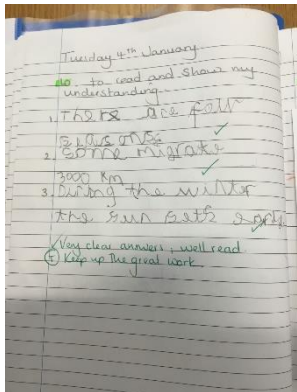 Tuesday 4th January
LO to read and show my
understanding
1. There are four
seasons.
2. Some migrate
3000 km
3. During the winter
the sun sets early
Very clear answers, well read
Keep up the great work.